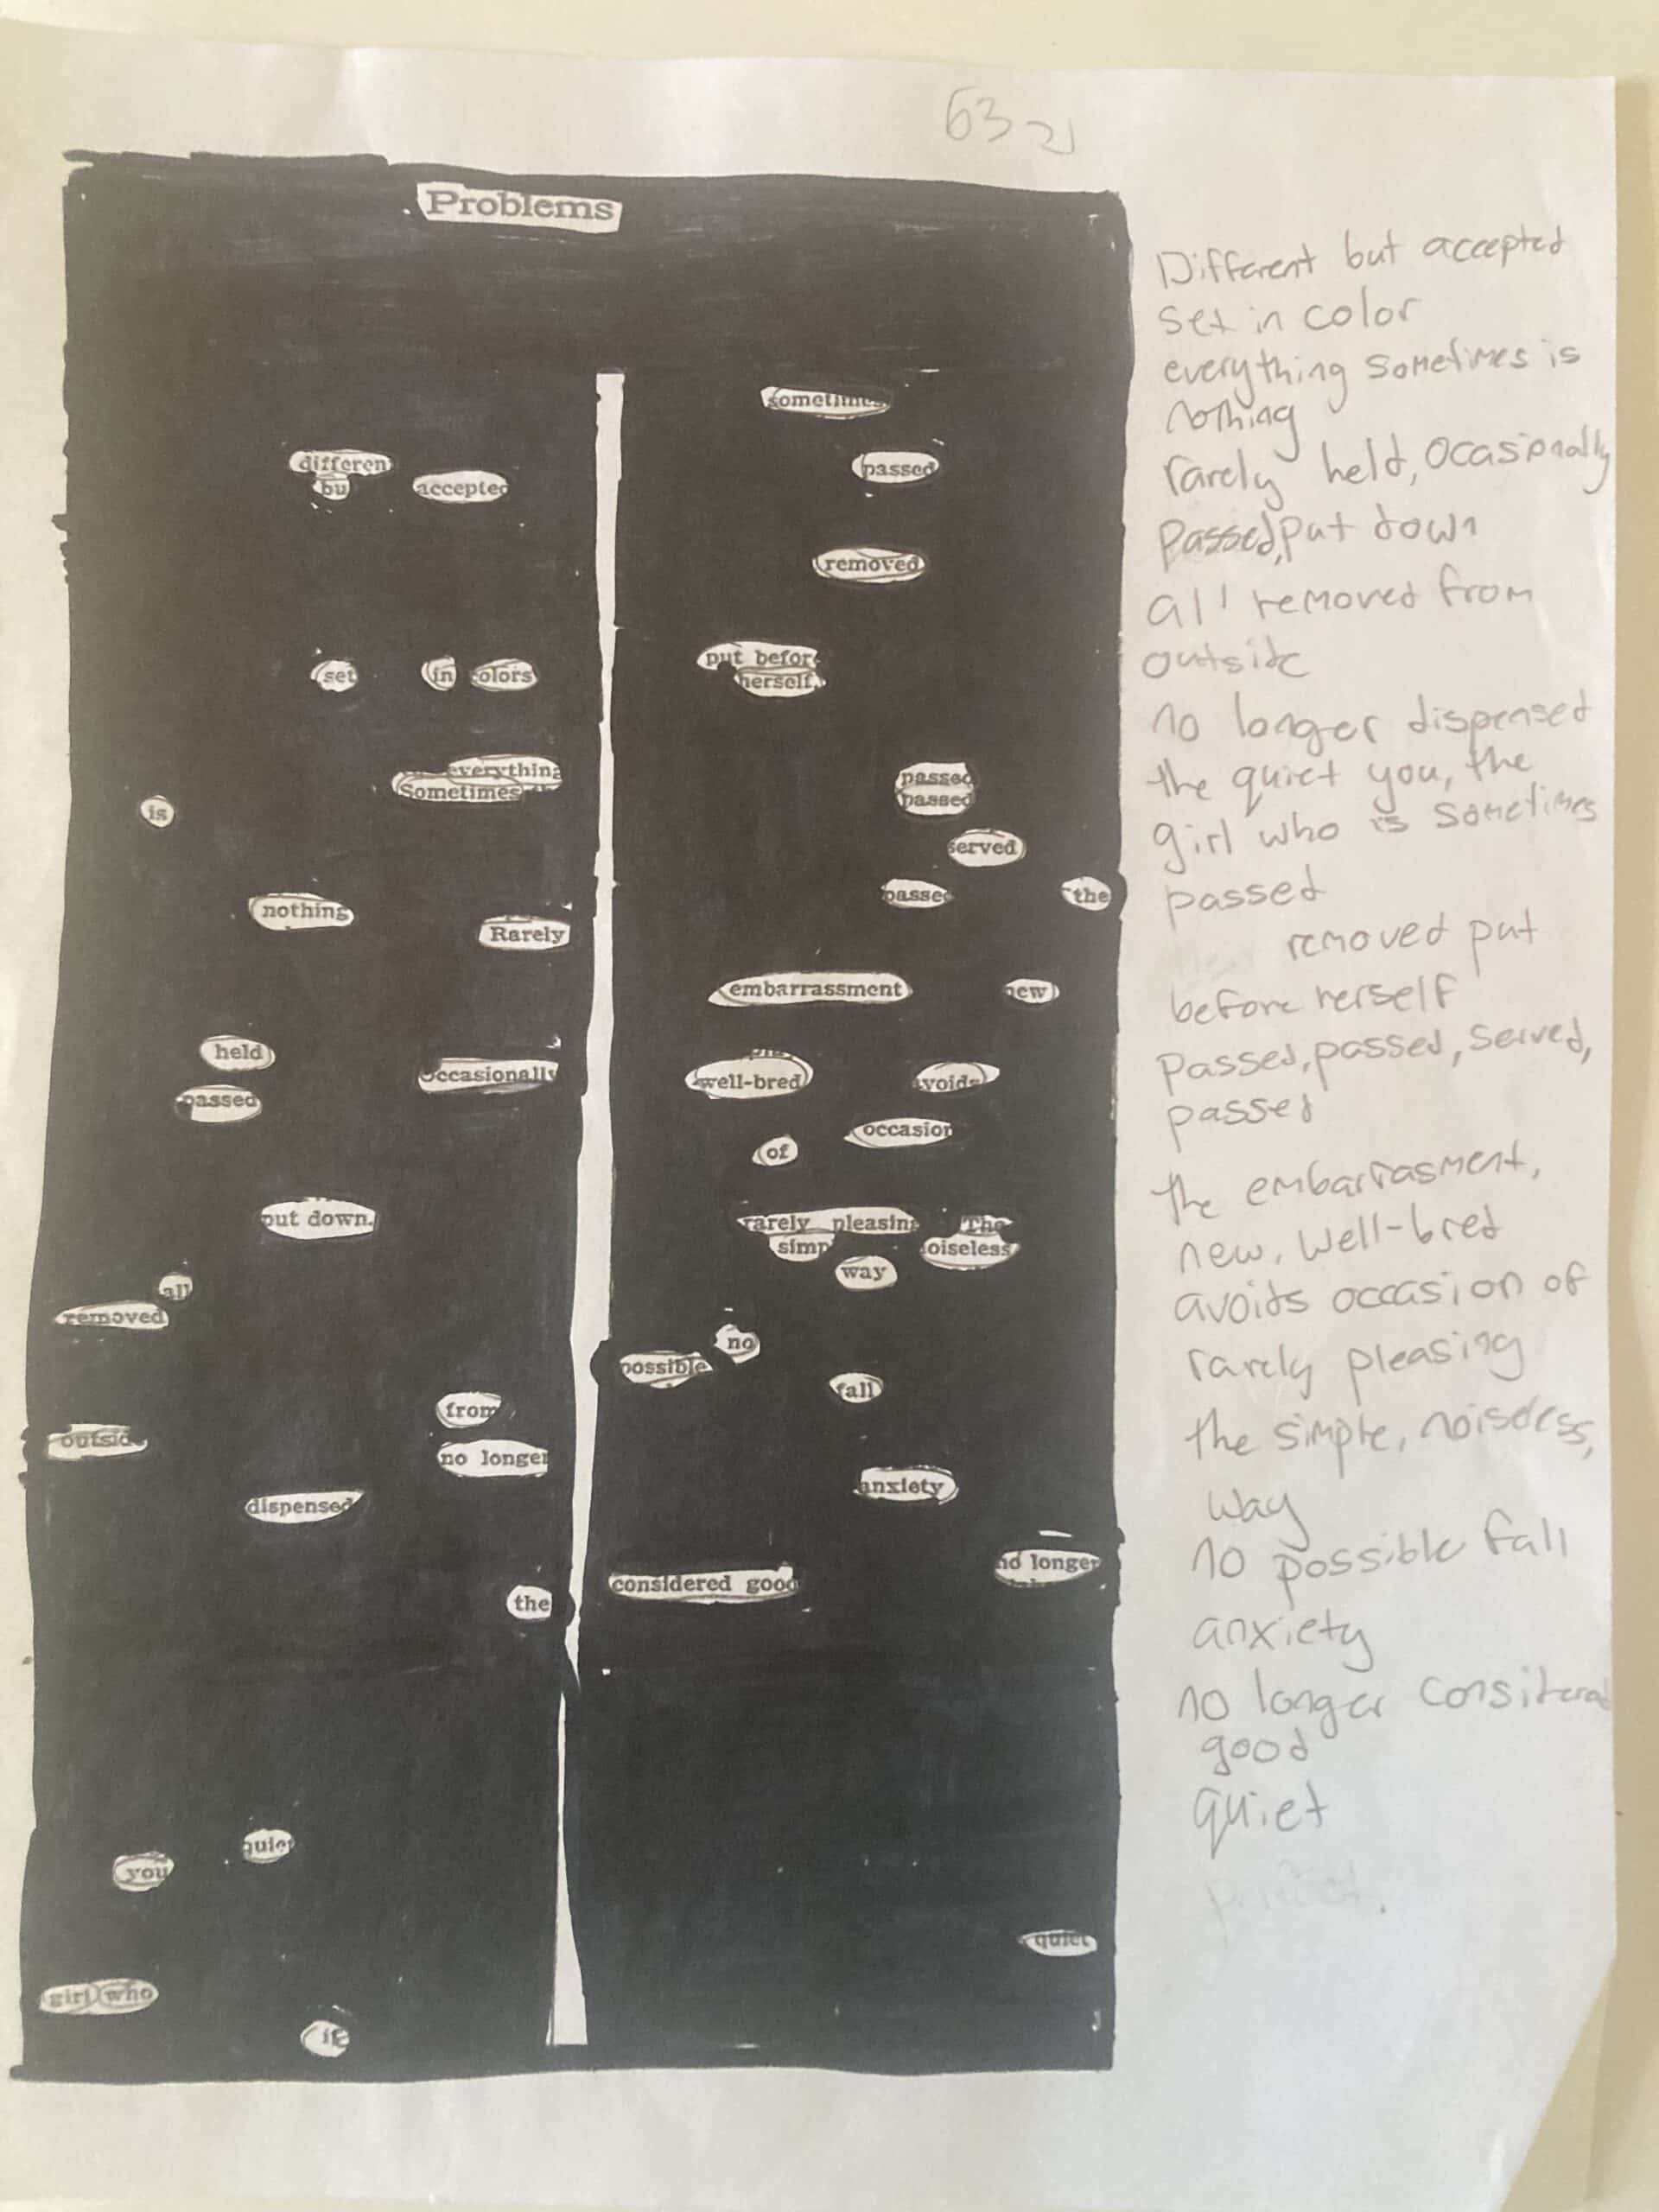 63
Problems
differen
bu accepted
set in olors
everything
Sometimes
is
nothing
Rarely
held
occasionally
passed
put down.
all
removed
from
outsid
no longer
dispensed
the
quiet
you
girl who
is
sometimes
passed
removed
put before
herself,
passed
passed
served
passed the
embarrassment new
well-bred avoids
occasion
of
rarely pleasing The
simp noiseless
way
no
possible
fall
anxiety
no longer
considered good
quiet
Different but accepted
set in color
everything sometimes is
nothing
rarely held, ocasionally
passed, put down
all removed from
outside
no longer dispensed
the quiet you, the
girl who is sometimes
passed
removed put
before herself
passed, passed, served,
passed
the embarrasment,
new, well-bred
avoids occasion of
rarely pleasing
the simple, noiseless,
way
no possible fall
anxiety
no longer considered
good
quiet